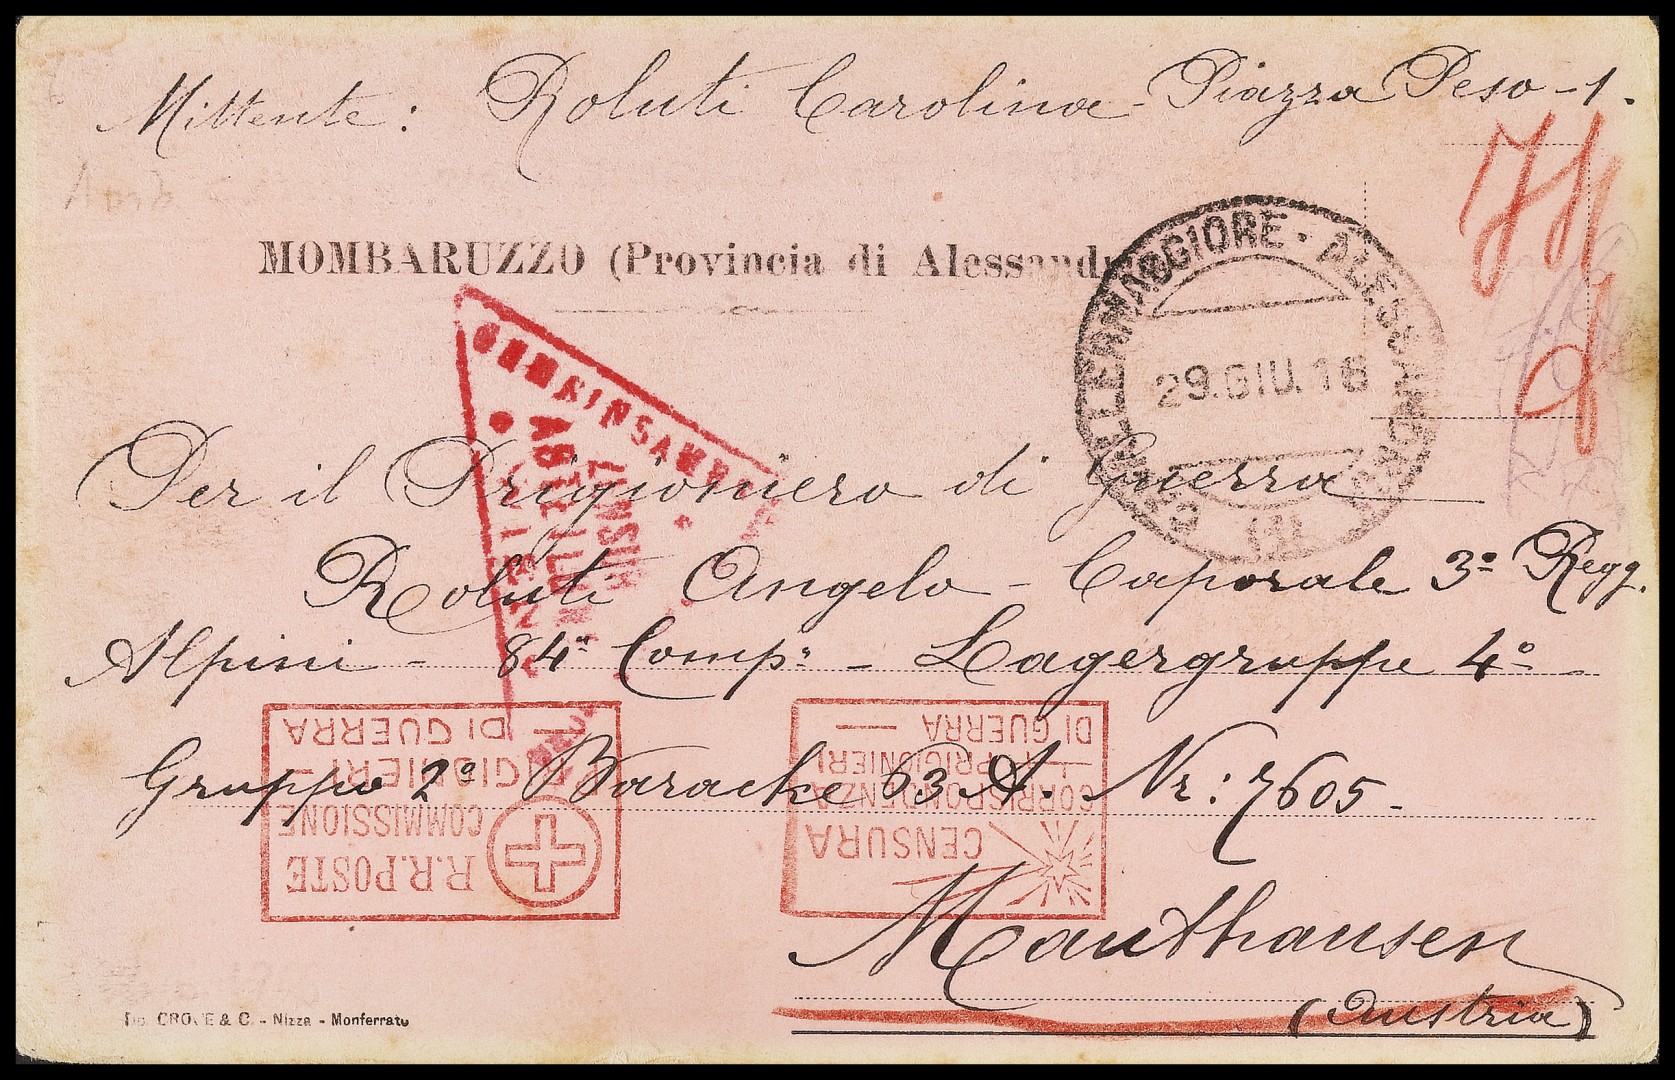 Mittente: Roluti Carolina - Piazza Peso - 1.
MOMBARUZZO (Provincia di Alessand
29.GIU.16
Per il Prigioniero di Guerra
Roluti Angelo - Caporale 3º Regg.
Alpini - 84ª Comp. - Lagergruppe 4º
Gruppo 2º Baracke 63 A. Nr: 7605 -
Mauthausen
(Austria)
R.R. POSTE
COMMISSIONE
PRIGIONIERI
DI GUERRA
CENSURA
CORRISPONDENZA
PRIGIONIERI
DI GUERRA
& C. - Nizza - Monferrato